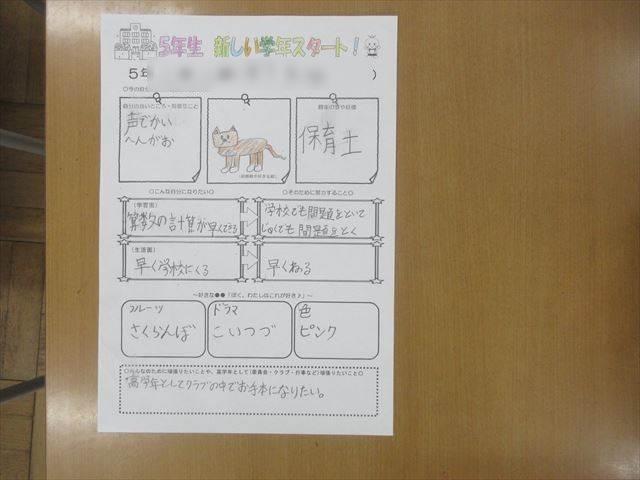 5年生 新しい学年スタート！
5年
)
○今の自分
自分の良いところ・得意なこと
声でかい
へんがお
(自画像や好きな絵)
将来の夢や目標
保育士
○こんな自分になりたい○
○そのために努力すること○
(学習面)
算数の計算が早くできる
学校でも問題をといて
じゅくでも問題をとく
(生活面)
早く学校にくる
早くねる
～好きな●●「ぼく、わたしはこれが好き♪」～
フルーツ
さくらんぼ
ドラマ
こいつづ
色
ピンク
○みんなのために頑張りたいことや、高学年として(委員会・クラブ・行事など)頑張りたいこと○
高学年としてクラブの中でお手本になりたい。